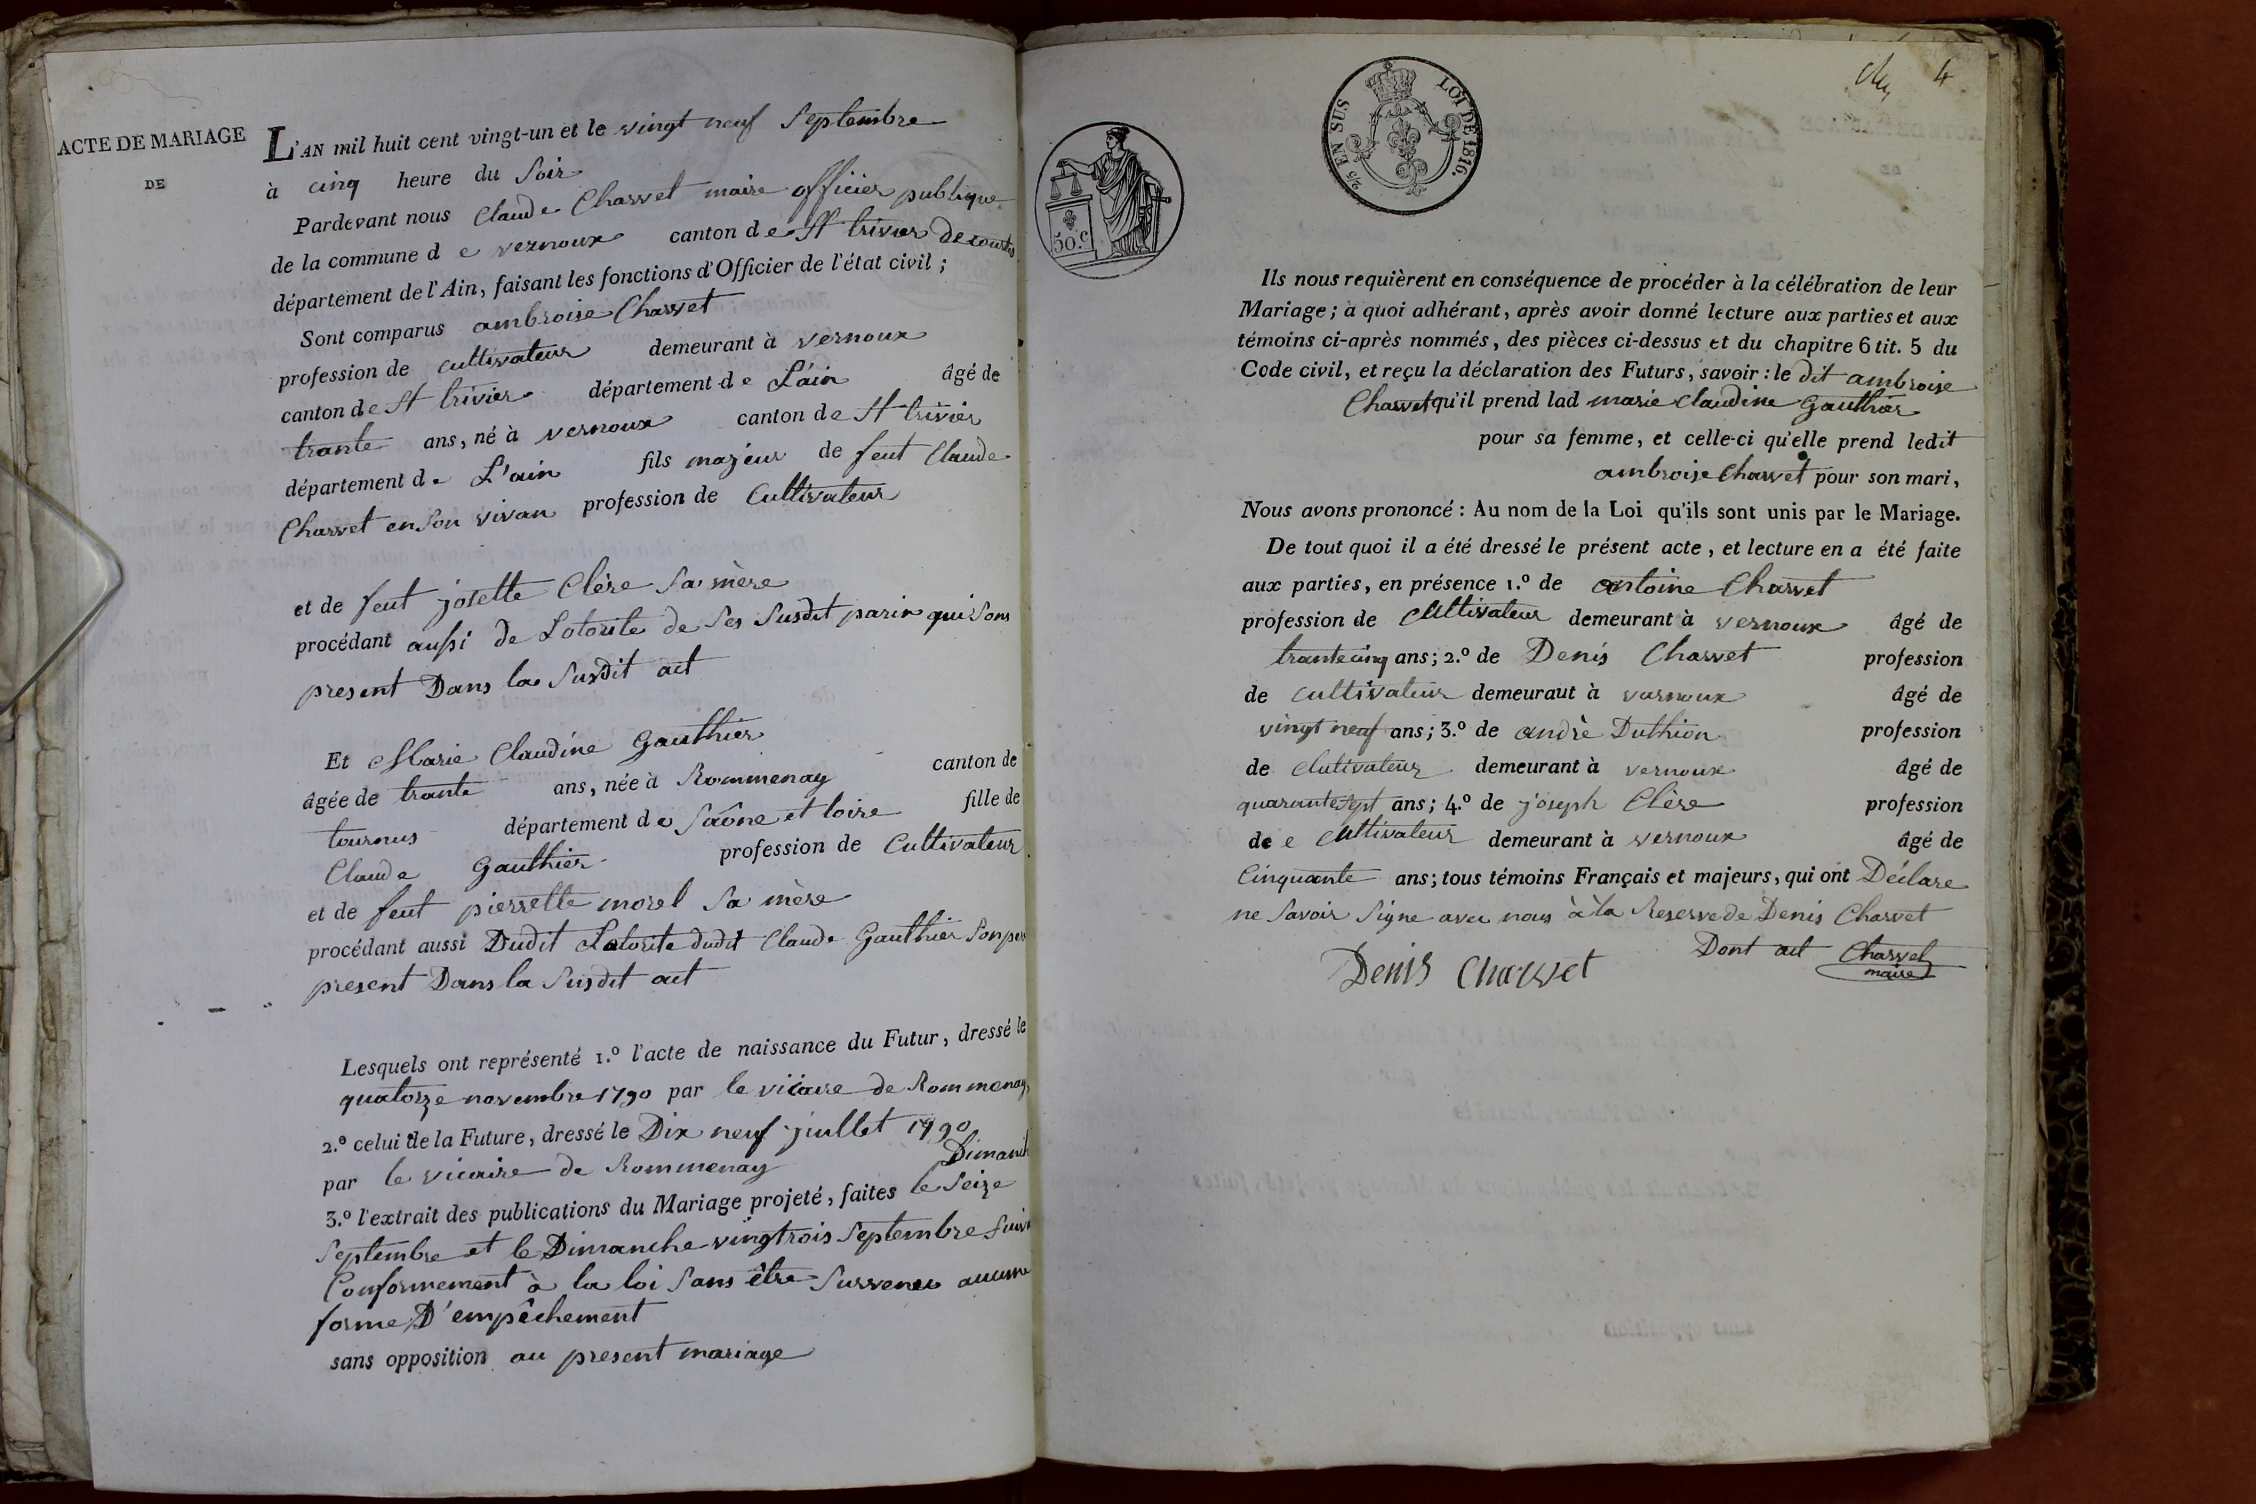 ACTE DE MARIAGE
DE
L'AN mil huit cent vingt-un et le vingt neuf Septembre
à cinq heure du Soir
Pardevant nous Claude Charvet maire officier publique
de la commune d e vernoux canton d e St trivier de courtes
département de l'Ain, faisant les fonctions d'Officier de l'état civil ;
Sont comparus ambroise Charvet
profession de cultivateur demeurant à vernoux
canton d e St trivier département d e L'ain âgé de
trante ans, né à vernoux canton d e St trivier
département d e L'ain fils majeur de feut Claude
Charvet en Son vivan profession de Cultivateur
et de feut josette Clère Sa mère
procédant aussi de Lotorite de Ses Susdit parin qui Sons
present Dans la Susdit act
Et Marie Claudine Gauthier
âgée de trante ans, née à Rommenay canton de
tournus département d e Saône et loire fille de
Claude Gauthier profession de Cultivateur
et de feut pierrette morel Sa mère
procédant aussi Dudit Latorite dudit Claude Gauthier Son per
present Dans la Susdit act
Lesquels ont représenté 1.º l'acte de naissance du Futur, dressé le
quatorze novembre 1790 par le vicaire de Rommenay
2.º celui de la Future, dressé le Dix neuf juillet 1790
par le vicaire de Rommenay
Dimanch
3.º l'extrait des publications du Mariage projeté, faites le Seize
Septembre et le Dimanche vingtrois Septembre Suiv
Conformement à la loi Sans être Survenu aucune
forme D'empêchement
sans opposition au present mariage
50.c
EN SUS
LOI DE 1816.
4
Ils nous requièrent en conséquence de procéder à la célébration de leur
Mariage ; à quoi adhérant, après avoir donné lecture aux parties et aux
témoins ci-après nommés, des pièces ci-dessus et du chapitre 6 tit. 5 du
Code civil, et reçu la déclaration des Futurs, savoir : le dit ambroise
Charvet qu'il prend lad marie Claudine Gauthier
pour sa femme, et celle-ci qu'elle prend ledit
ambroise Charvet pour son mari,
Nous avons prononcé : Au nom de la Loi qu'ils sont unis par le Mariage.
De tout quoi il a été dressé le présent acte, et lecture en a été faite
aux parties, en présence 1.º de antoine Charvet
profession de Cultivateur demeurant à vernoux âgé de
trantecinq ans ; 2.º de Denis Charvet profession
de cultivateur demeuraut à varnoux âgé de
vingt neuf ans ; 3.º de andrè Duthion profession
de clutivateur demeurant à vernoux âgé de
quarantesept ans ; 4.º de joseph Clère profession
de e Cultivateur demeurant à vernoux âgé de
Cinquante ans ; tous témoins Français et majeurs, qui ont Déclare
ne Savoir Signe avec nous à la Reserve de Denis Charvet
Dont act Charvet
maire
Denis Charvet